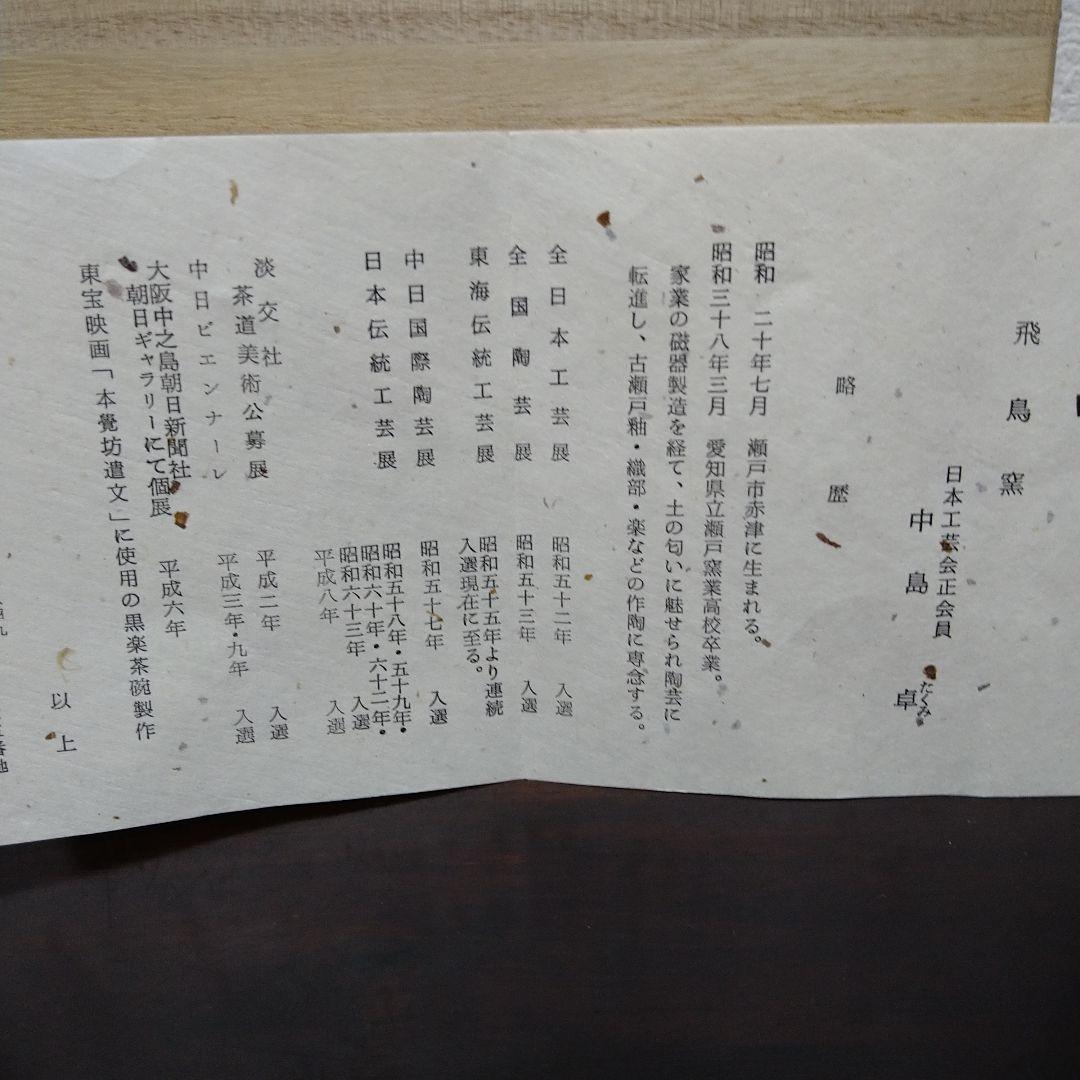 飛鳥窯
日本工芸会正会員
中島卓
たくみ
略歴
昭和 二十年七月 瀬戸市赤津に生まれる。
昭和三十八年三月 愛知県立瀬戸窯業高校卒業。
家業の磁器製造を経て、土の匂いに魅せられ陶芸に
転進し、古瀬戸釉・織部・楽などの作陶に専念する。
全日本工芸展 昭和五十二年 入選
全国陶芸展 昭和五十三年 入選
東海伝統工芸展 昭和五十五年より連続
入選現在に至る。
中日国際陶芸展 昭和五十七年 入選
日本伝統工芸展 昭和五十八年・五十九年・
昭和六十年・六十二年・
昭和六十三年 入選
平成八年 入選
淡交社
茶道美術公募展 平成二年 入選
中日ビエンナーレ 平成三年・九年 入選
大阪中之島朝日新聞社
朝日ギャラリーにて個展 平成六年
東宝映画「本覺坊遺文」に使用の黒楽茶碗製作
以上
番地